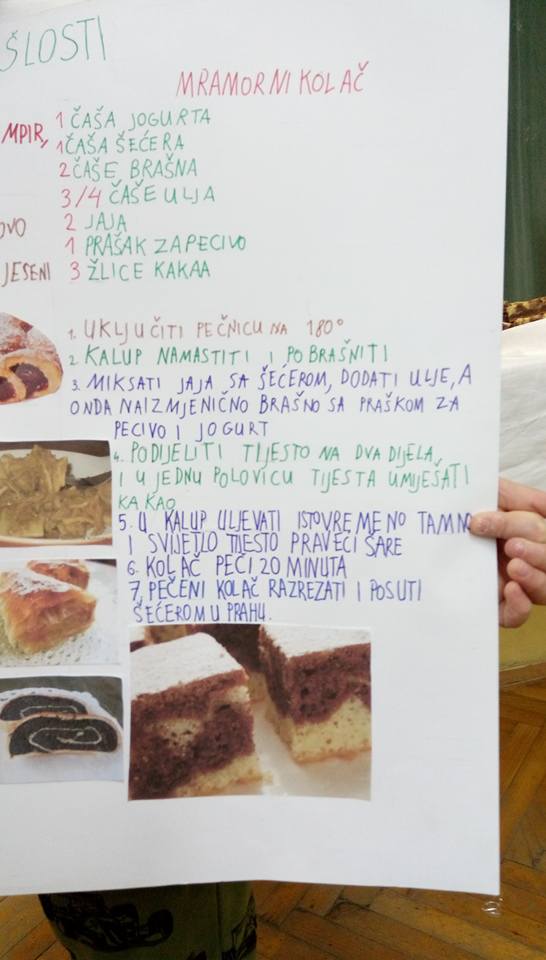 ŠLOSTI
MRAMORNI KOLAČ
MPIR,
OVO
JESENI
1 ČAŠA JOGURTA
1 ČAŠA ŠEĆERA
2 ČAŠE BRAŠNA
3/4 ČAŠE ULJA
2 JAJA
1 PRAŠAK ZA PECIVO
3 ŽLICE KAKAA
1. UKLJUČITI PEČNICU NA 180°
2. KALUP NAMASTITI I POBRAŠNITI
3. MIKSATI JAJA SA ŠEĆEROM, DODATI ULJE, A
ONDA NAIZMJENIČNO BRAŠNO SA PRAŠKOM ZA
PECIVO I JOGURT
4. PODIJELITI TIJESTO NA DVA DIJELA,
I U JEDNU POLOVICU TIJESTA UMIJEŠATI
KAKAO
5. U KALUP ULJEVATI ISTOVREMENO TAMNO
I SVIJETLO TIJESTO PRAVEĆI ŠARE
6. KOLAČ PEĆI 20 MINUTA
7, PEČENI KOLAČ RAZREZATI I POSUTI
ŠEĆEROM U PRAHU.